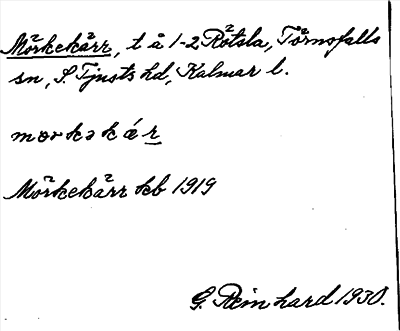 Mörkekärr, t å 1-2 Rötsla, Törnsfalls
sn, S. Tjusts hd, Kalmar l.
mœrkəkár
Mörkekärr kb 1919
G. Reinhard 1930.